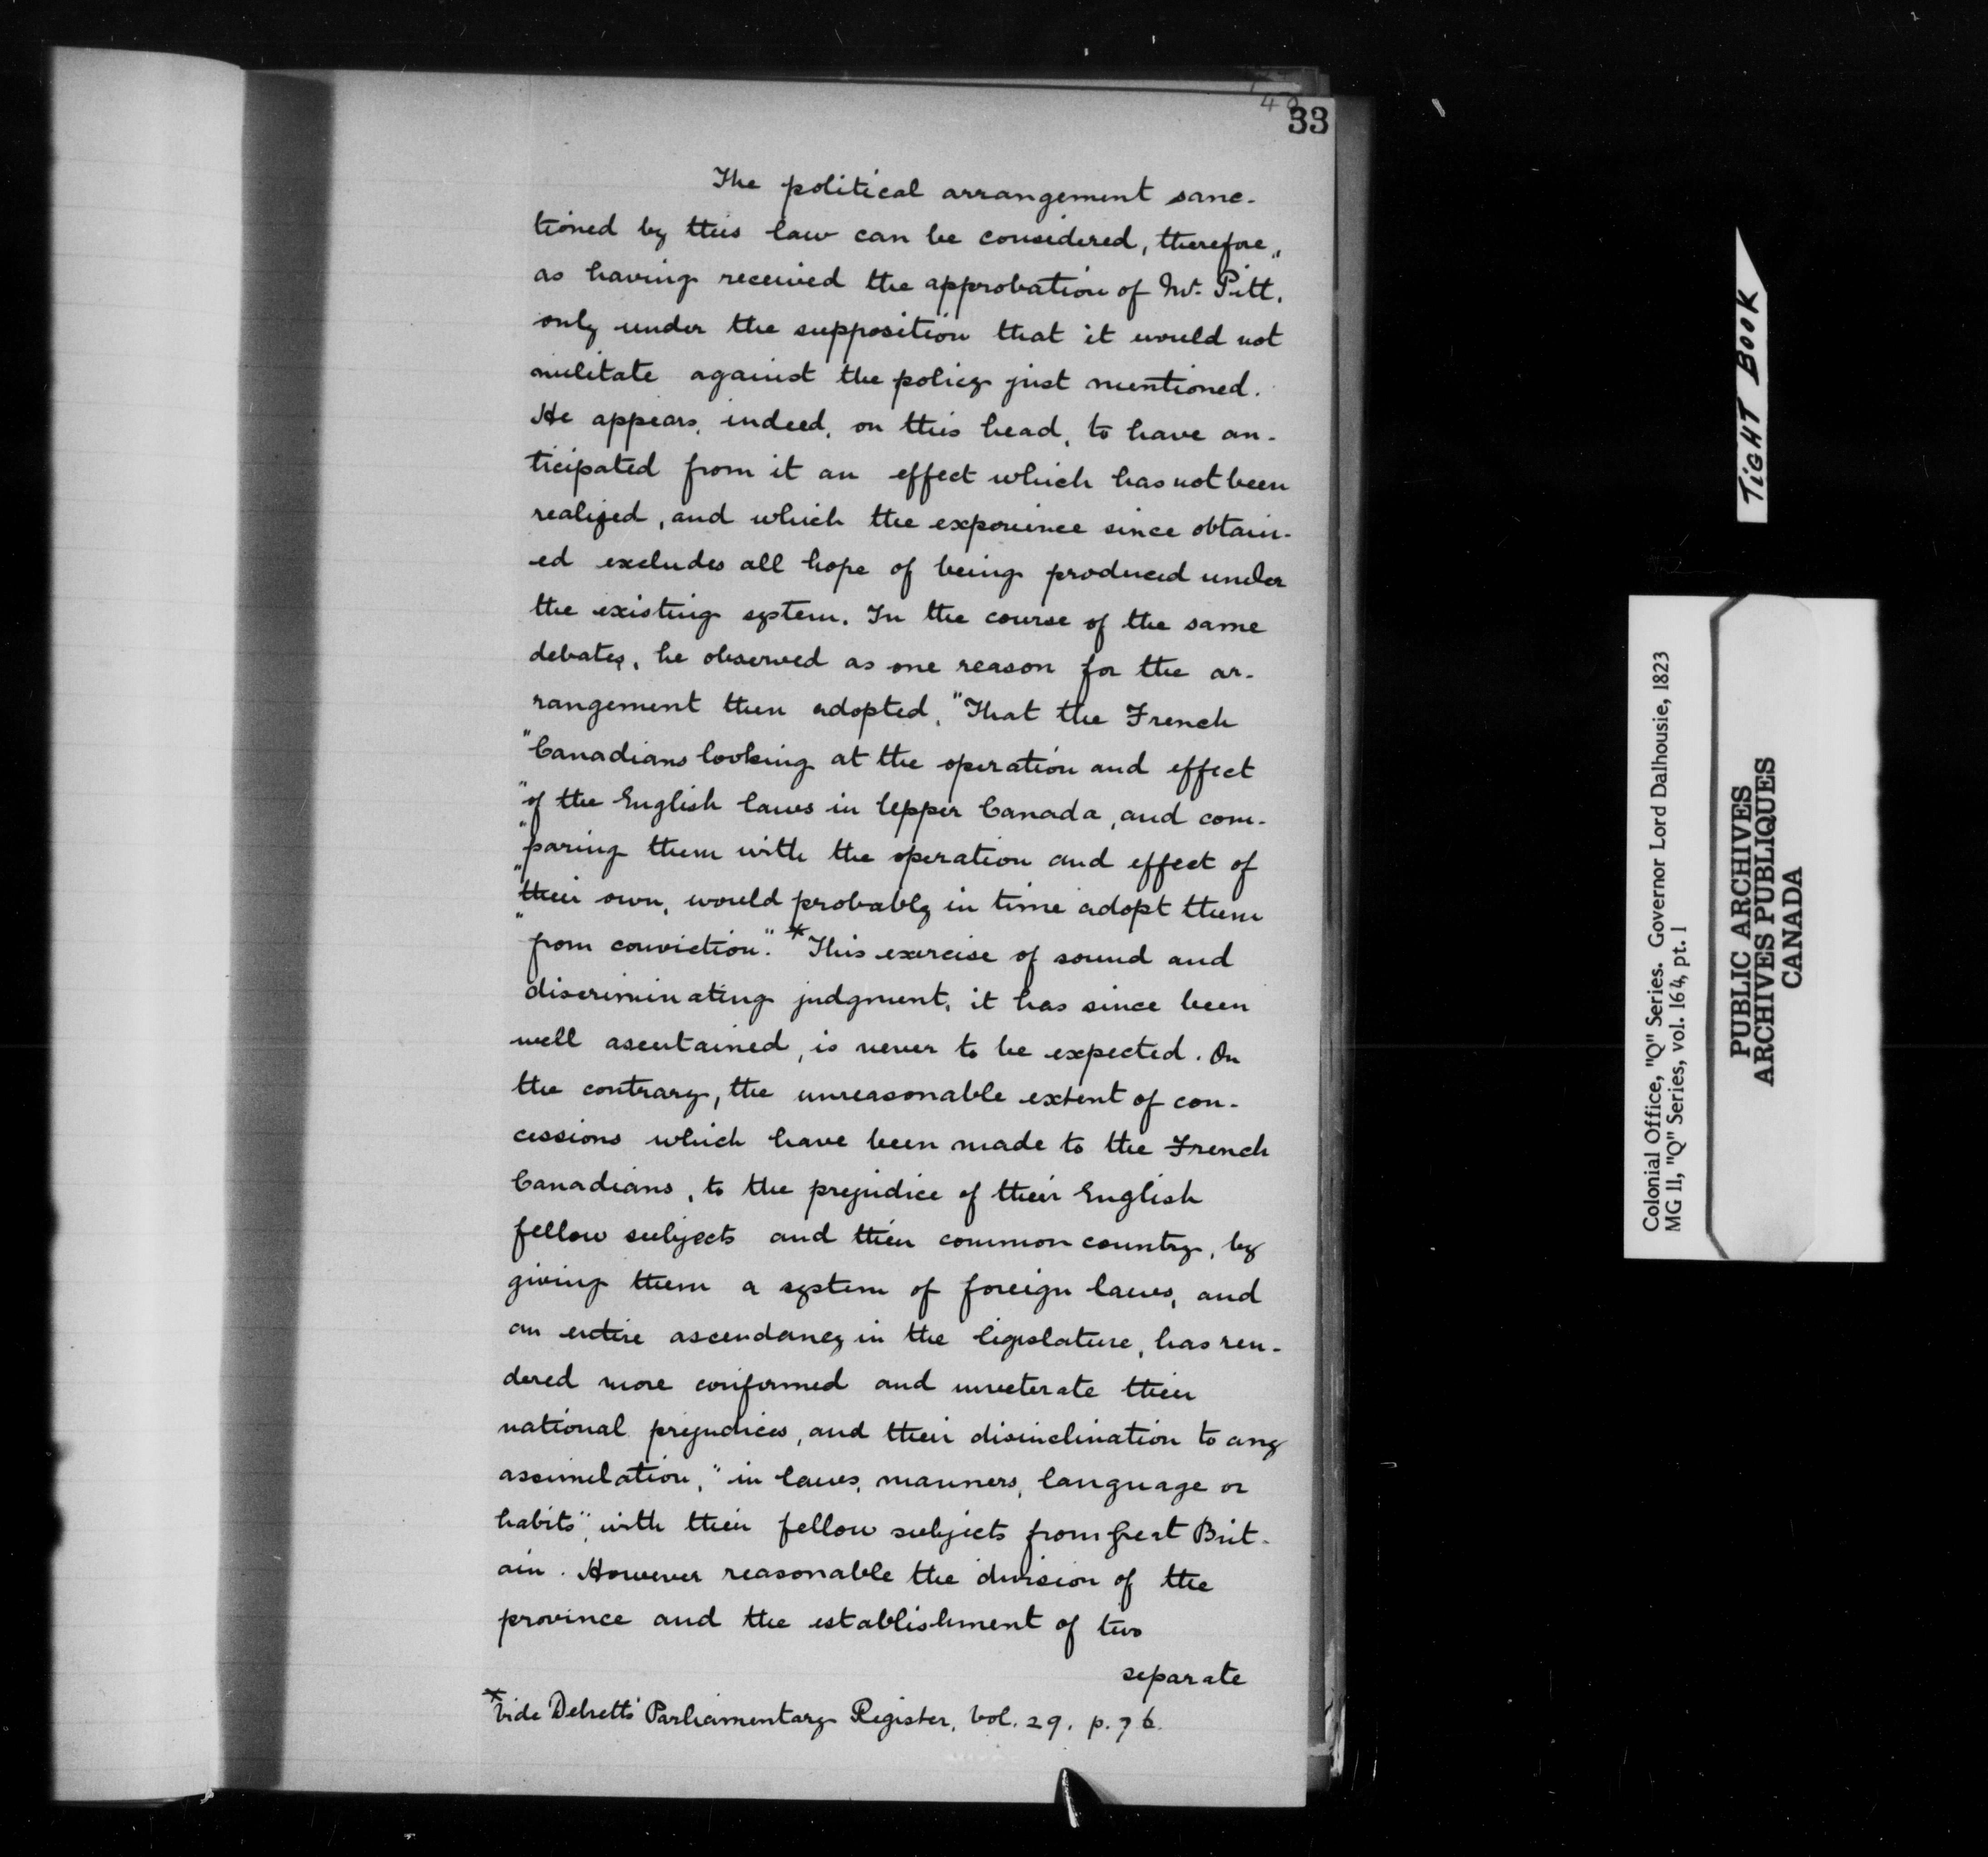 33
The political arrangement sanc-
tioned by this law can be considered, therefore,
as having received the approbation of Mr. Pitt.
only under the supposition that it would not
militate against the policy just mentioned.
He appears, indeed, on this head, to have an-
ticipated from it an effect which has not been
realized, and which the experience since obtain-
ed excludes all hope of being produced under
the existing system. In the course of the same
debates, he observed as one reason for the ar-
rangement then adopted, "That the French
"Canadians looking at the operation and effect
"of the English laws in Upper Canada, and com-
"paring them with the operation and effect of
"their own, would probably in time adopt them
"from conviction".* This exercise of sound and
discriminating judgment, it has since been
well ascertained, is never to be expected. On
the contrary, the unreasonable extent of con-
cessions which have been made to the French
Canadians, to the prejudice of their English
fellow subjects and their common country, by
giving them a system of foreign laws, and
an entire ascendancy in the legislature, has ren-
dered more confirmed and inveterate their
national prejudices, and their disinclination to any
assimilation, "in laws, manners, language or
habits", with their fellow subjects from Great Brit-
ain. However reasonable the division of the
province and the establishment of two
separate
*Vide Debrett's Parliamentary Register, Vol. 29. p. 76.
TIGHT BOOK
Colonial Office, "Q" Series. Governor Lord Dalhousie, 1823
MG 11, "Q" Series, vol. 164, pt. 1
PUBLIC ARCHIVES
ARCHIVES PUBLIQUES
CANADA